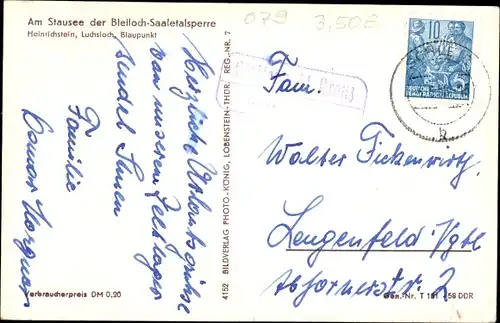 Am Stausee der Bleiloch-Saaletalsperre
Heinrichstein, Luchsloch, Blaupunkt
079 3,50 E
Herzliche Urlaubsgrüße
von unserem Zeltlager
sendet Ihnen
Familie
Verbraucherpreis DM 0,20
4152 BILDVERLAG PHOTO-KÖNIG, LOBENSTEIN-THÜR. REG.-NR. 7
10
DEUTSCHE
DEMOKRATISCHE REPUBLIK
5
b
Fam.
Walter Fickenwirth
Lengenfeld/Vgtl.
str. 2
Gen.-Nr. T 151 /59 DDR